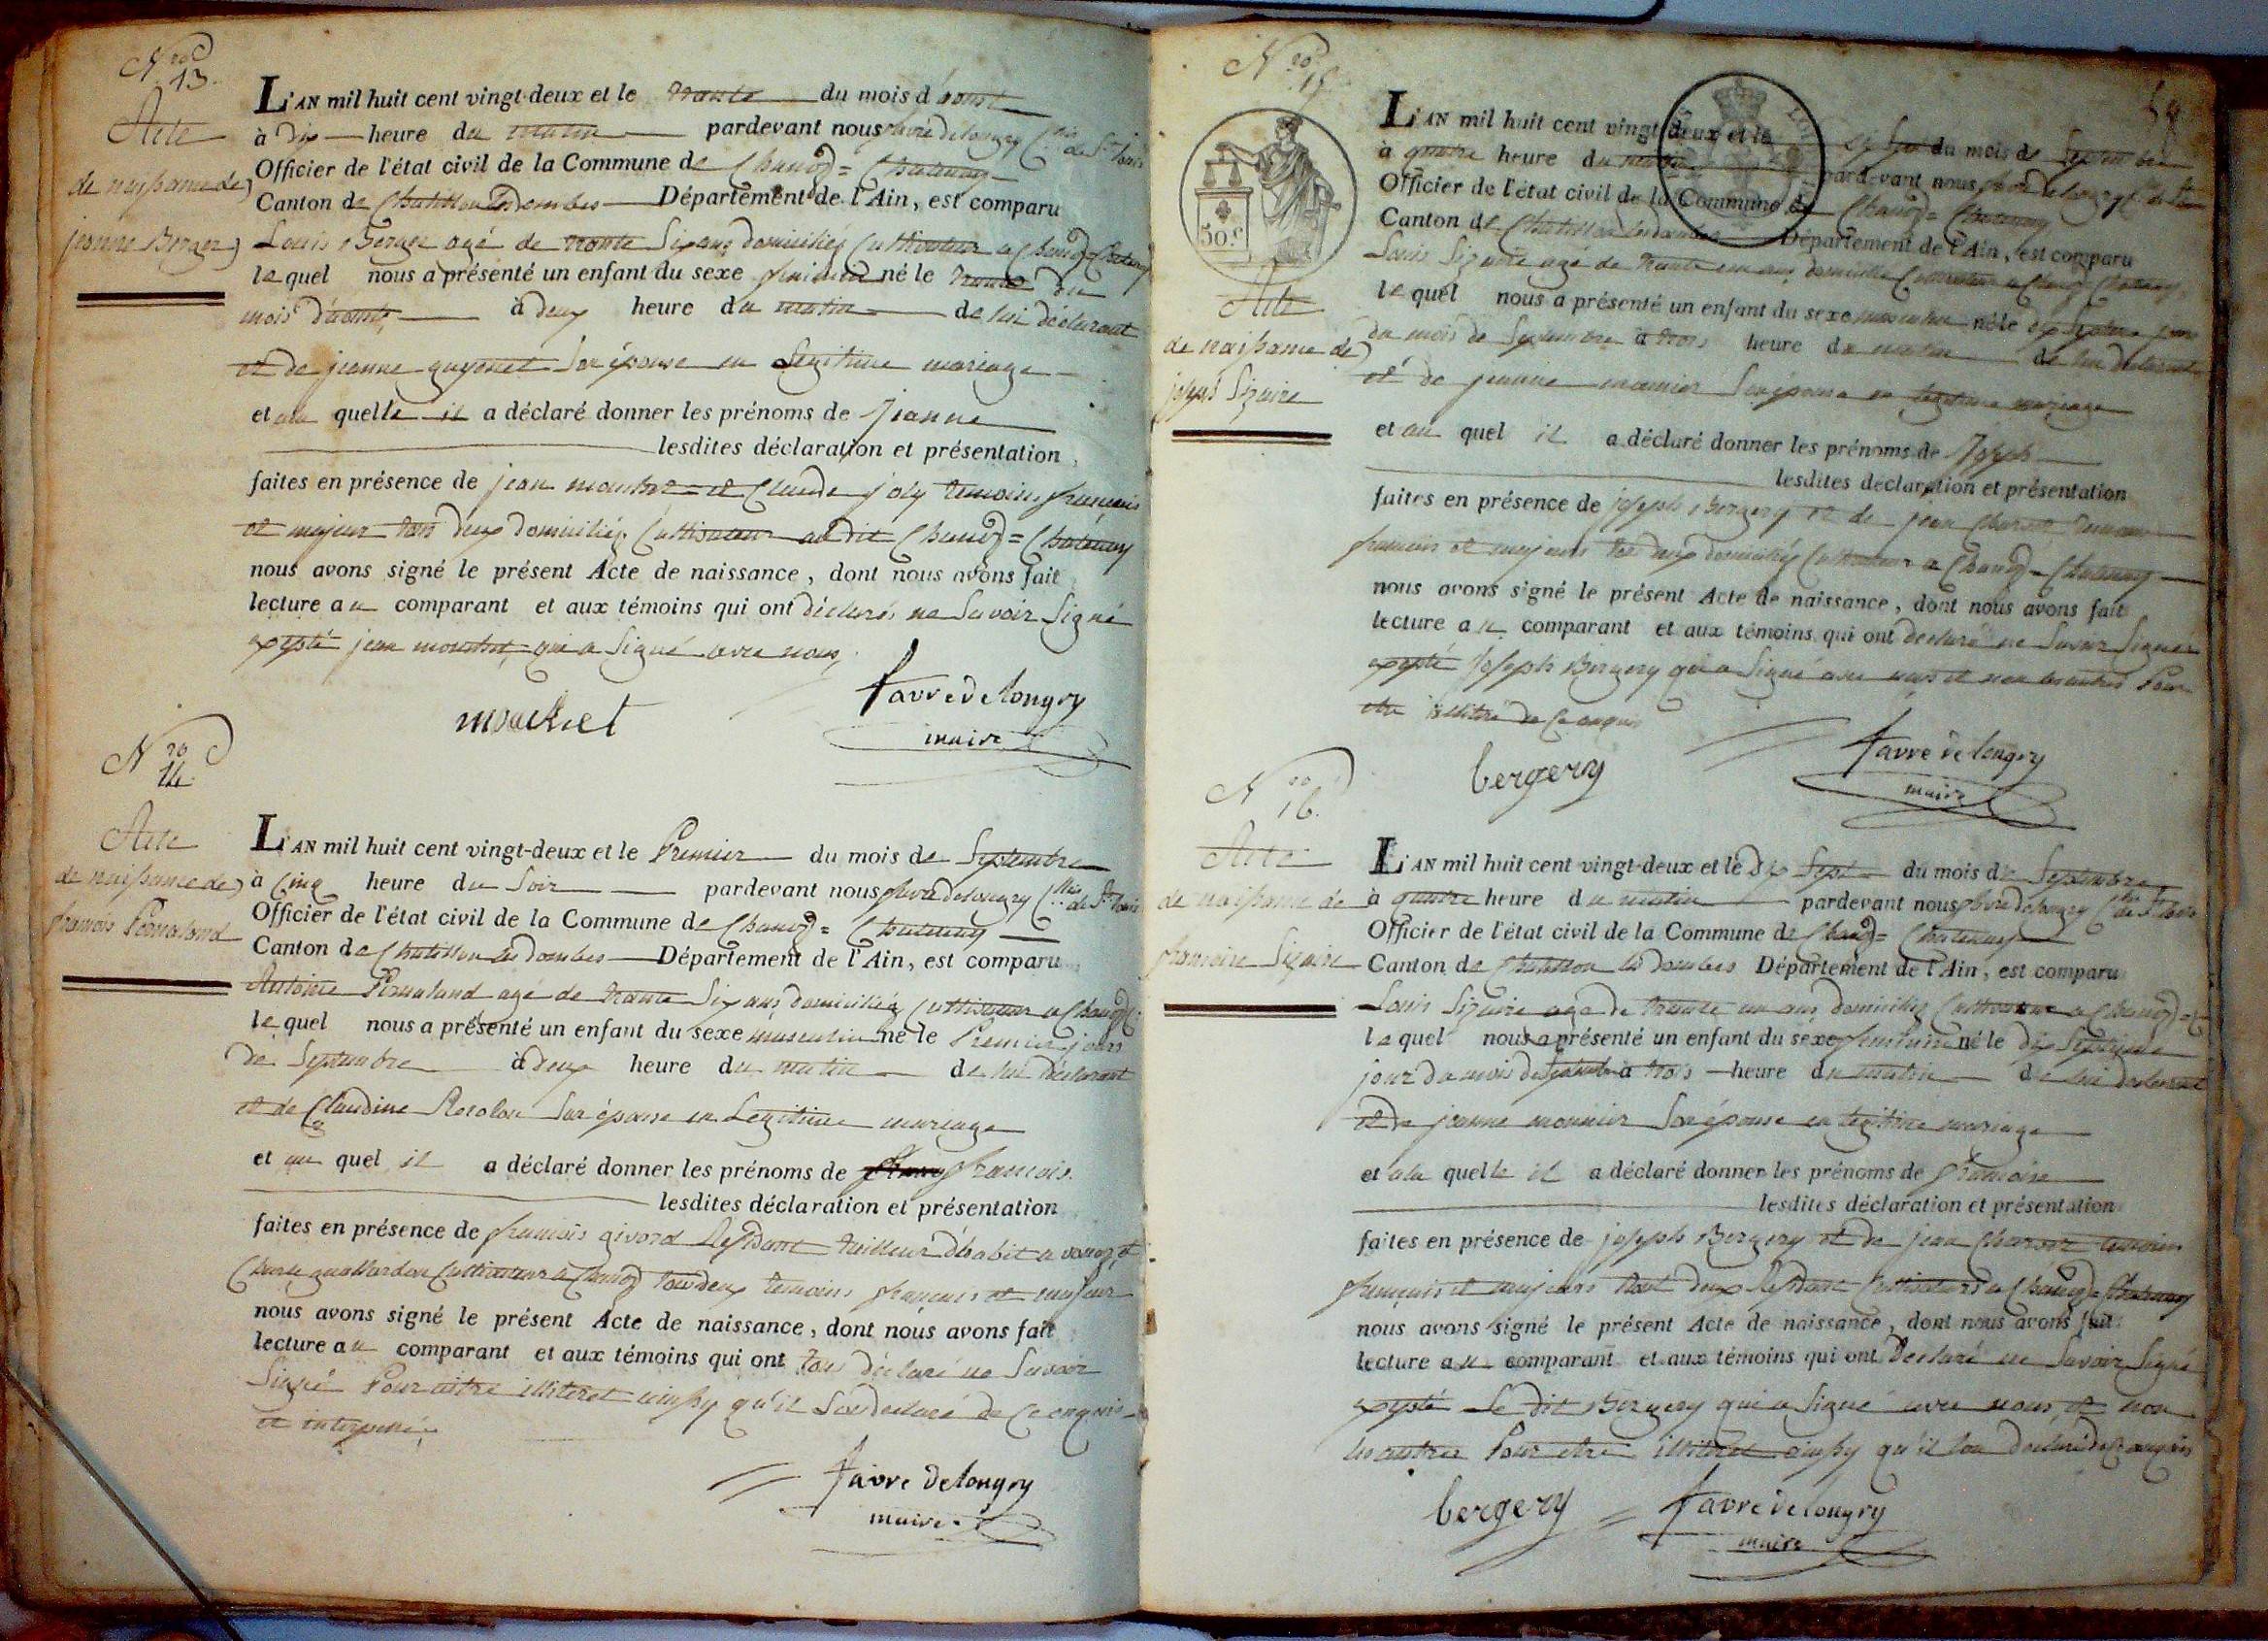 Nro
13.
Acte
de naissance de
jeanne Berger
L'AN mil huit cent vingt-deux et le trente du mois d'aoust
à dix heure du matin pardevant nous favre delongry Ch.er de St. Louis
Officier de l'état civil de la Commune de Chanoz = Chatenay
Canton de Chatillon les dombes Département de l'Ain, est comparu
Louis Berger agé de trente six ans domicilié Cultivateur a Chanoz Chatenay
lequel nous a présenté un enfant du sexe feminin né le trente du
mois d'aoust à deux heure du matin de lui déclarant
et de jeanne guyonet son épouse en Legitime mariage
et a la quelle il a déclaré donner les prénoms de Jeanne
lesdites déclaration et présentation
faites en présence de jean et Claude joly temoins francais
et majeur tous deux domiciliés Cultivateur au dit Chanoz = Chatenay
nous avons signé le présent Acte de naissance, dont nous avons fait
lecture au comparant et aux témoins qui ont déclarés ne Savoir Signé
exepté jean qui a Signé avec nous,
favre delongry
maire
Nro
14.
Acte
de naissance de
francois
L'AN mil huit cent vingt-deux et le Premier du mois de Septembre
à Cinq heure du Soir pardevant nous favre delongry Ch.er de St. Louis
Officier de l'état civil de la Commune de Chanoz = Chatenay
Canton de Chatillon les dombes Département de l'Ain, est comparu
Antoine agé de trente Six ans domicilié Cultivateur a Chanoz C.
lequel nous a présenté un enfant du sexe masculin né le Premier jours
de Septembre à deux heure du matin de lui déclarant
et de Claudine son épouse en Legitime mariage
et au quel il a déclaré donner les prénoms de francois.
lesdites déclaration et présentation
faites en présence de francois givord Residant tailleur d'habit a vonnas et
Charle Cultivateur a Chanoz tous deux temoins francais et majeur
nous avons signé le présent Acte de naissance, dont nous avons fait
lecture au comparant et aux témoins qui ont tous déclaré ne Savoir
Signé Pour être illiteret ainssy qu'il déclaré de Ce enquis
et interpellé.
favre delongry
maire
59
Nro
15.
50.c
Acte
de naissance de
joseph Sizaire
L'AN mil huit cent vingt-deux et le dix sept du mois de Septembre
à quatre heure du matin pardevant nous favre delongry Ch.er de St.
Officier de l'état civil de la Commune de Chanoz = Chatenay
Canton de Chatillon les dombes Département de l'Ain, est comparu
Louis Sizaire agé de trente un ans domicilié Cultivateur a Chanoz Chatenay
lequel nous a présenté un enfant du sexe masculin né le dix Septieme jour
du mois de Septembre à trois heure du matin de lui déclarant
et de jeanne monnier Son épouse en legitime mariage
et au quel il a déclaré donner les prénoms de Joseph
lesdites déclaration et présentation
faites en présence de joseph Bergery et de jean temoins
francais et majeurs tous deux domiciliés Cultivateur a Chanoz = Chatenay
nous avons signé le présent Acte de naissance, dont nous avons fait
lecture au comparant et aux témoins qui ont déclaré ne Savoir Signer
exepté Joseph Bergery qui a Signé avec nous et non les autres Pour
etre illitré de Ce enquis
bergery
favre delongry
maire
Nro
16.
Acte
de naissance de
francoise Sizaire
L'AN mil huit cent vingt-deux et le Dix Sept du mois de Septembre
à quatre heure du matin pardevant nous favre delongry Ch.er de St. Louis
Officier de l'état civil de la Commune de Chanoz = Chatenay
Canton de Chatillon les dombes Département de l'Ain, est comparu
Louis Sizaire agé de trente un ans domicilié Cultivateur a Chanoz = C
lequel nous a présenté un enfant du sexe feminin né le dix Septieme
jour du mois de Septembre à trois heure du matin de lui déclarant
et de jeanne monnier Son épouse en legitime mariage
et a la quelle il a déclaré donner les prénoms de francoise
lesdites déclaration et présentation
faites en présence de joseph Bergery et de jean temoins
francais et majeurs tout deux Residant Cultivateurs a Chanoz = Chatenay
nous avons signé le présent Acte de naissance, dont nous avons fait
lecture au comparant et aux témoins qui ont Déclaré ne Savoir Signé
exepté Le dit Bergery qui a Signé avec nous, et non
les autres Pour etre illiteret ainssy qu'il déclaré de Ce enquis
bergery
favre delongry
maire